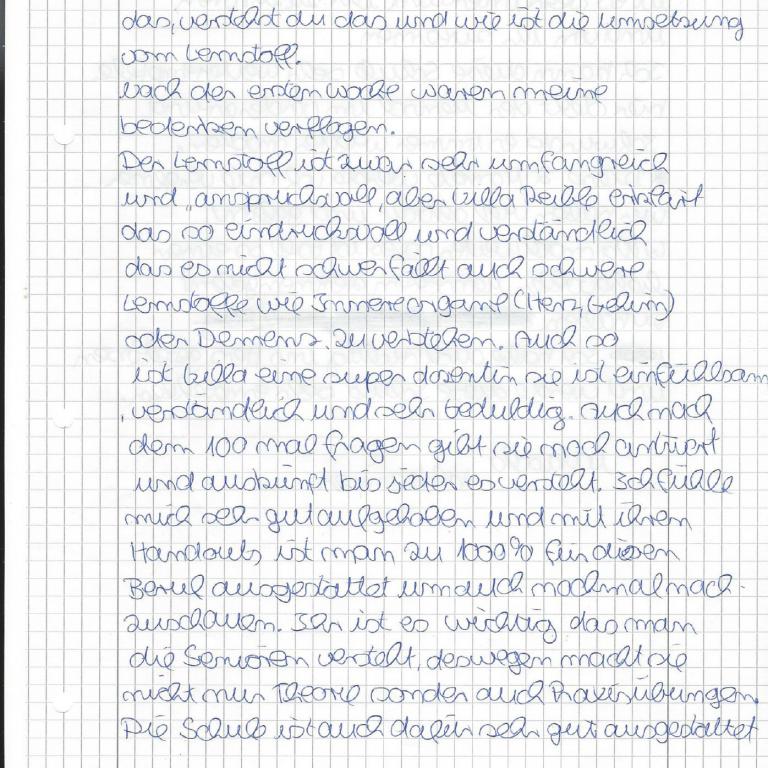 das, verstehst du das und wie ist die umsetzung
vom Lernstoff.
Nach der ersten woche waren meine
bedenken verflogen.
Der Lernstoff ist zwar sehr umfangreich
und, anspruchsvoll, aber Ulla Reible erklärt
das so eindrucksvoll und verständlich
das es nicht schwer fällt auch schwere
Lernstoffe wie Innere organe (Herz, Gehirn)
oder Demenz. zu verstehen. Auch so
ist Ulla eine super dozentin sie ist einfühlsam
, verständlich und sehr geduldig. Auch nach
dem 100 mal fragen gibt sie noch antwort
und auskunft bis jeder es versteht. Ich fühle
mich sehr gut aufgehoben und mit ihren
Handouts ist man zu 1000% für diesen
Beruf ausgestattet um auch nochmal nach-
zuschauen. Ihr ist es wichtig das man
die Senioren versteht, deswegen macht sie
nicht nur Theorie sonder auch Praxisübungen.
Die Schule ist auch dafür sehr gut ausgestattet